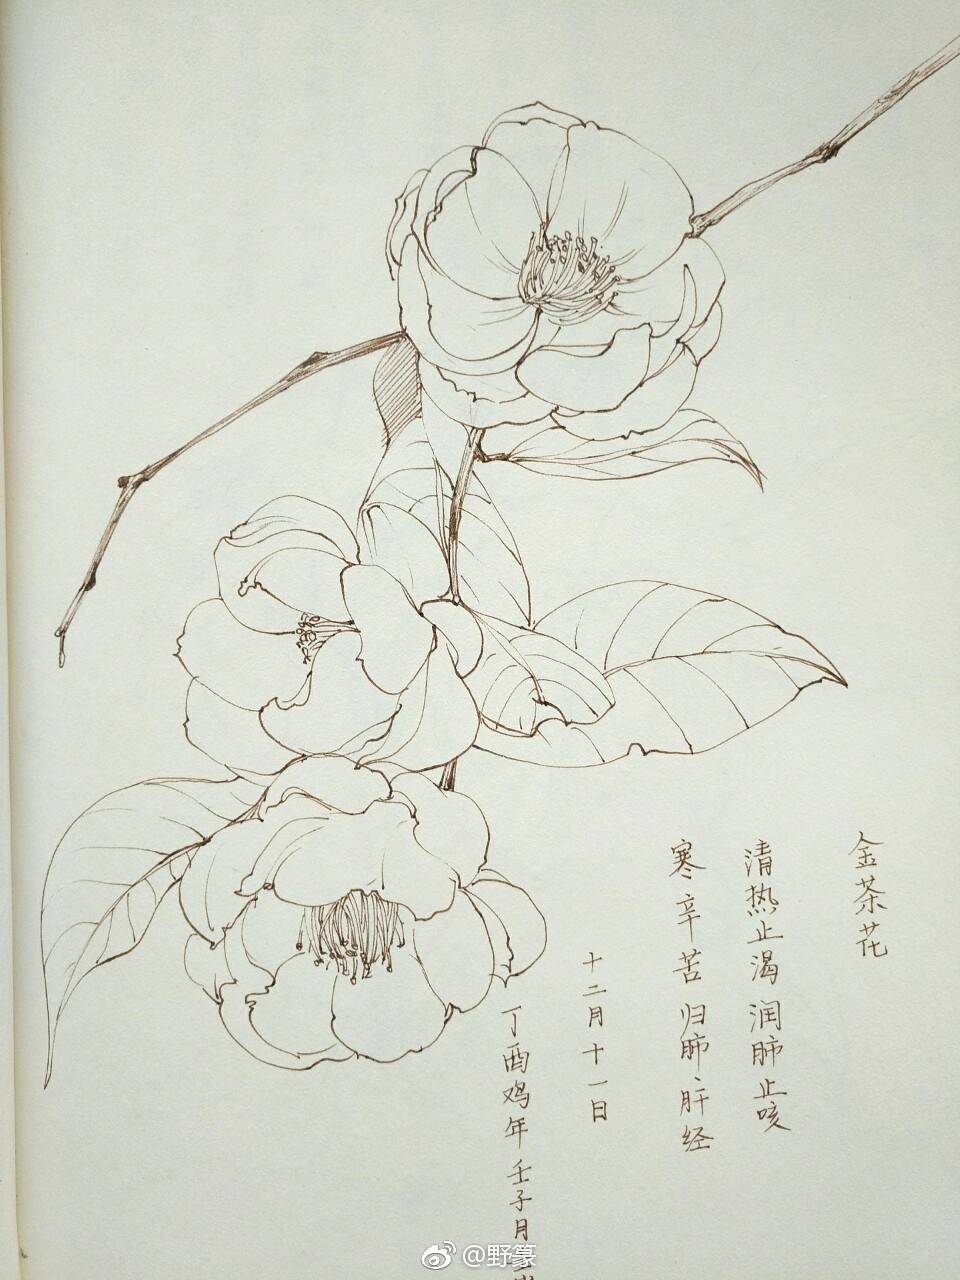 金茶花
清热止渴 润肺止咳
寒 辛 苦 归肺、肝经
十二月十一日
丁酉鸡年 壬子月
@野篆